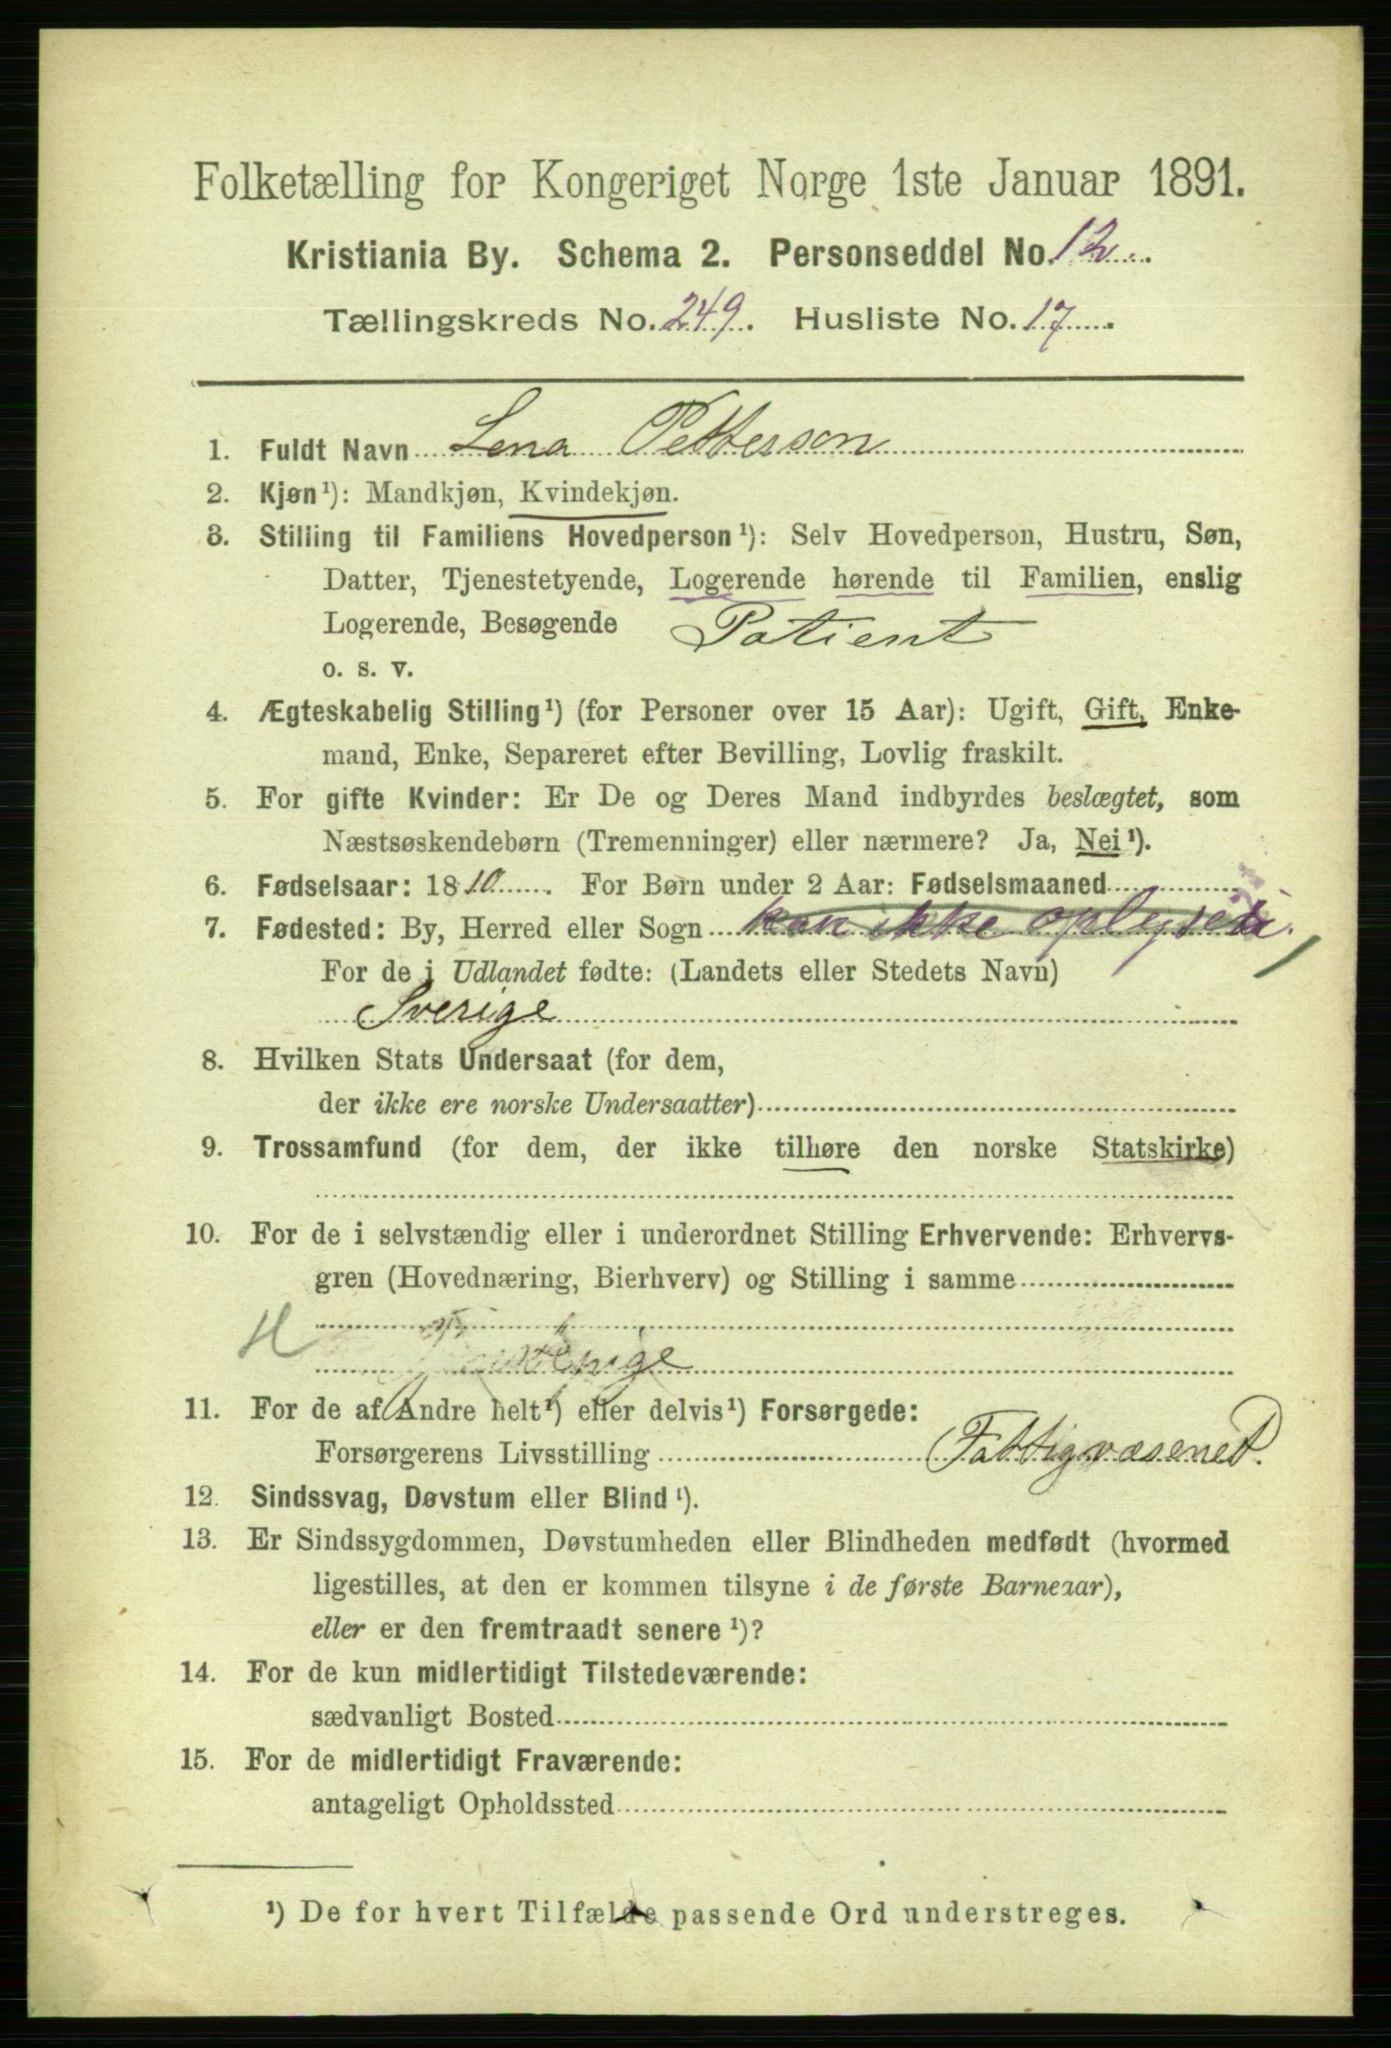 Folketælling for Kongeriget Norge 1ste Januar 1891.
Kristiania By. Schema 2. Personseddel No. 12
Tællingskreds No. 249. Husliste No. 17
1. Fuldt Navn Lena Petterson
2. Kjøn¹): Mandkjøn, Kvindekjøn.
3. Stilling til Familiens Hovedperson¹): Selv Hovedperson, Hustru, Søn,
Datter, Tjenestetyende, Logerende hørende til Familien, enslig
Logerende, Besøgende Patient
o. s. v.
4. Ægteskabelig Stilling¹) (for Personer over 15 Aar): Ugift, Gift, Enke-
mand, Enke, Separeret efter Bevilling, Lovlig fraskilt.
5. For gifte Kvinder: Er De og Deres Mand indbyrdes beslægtet, som
Næstsøskendebørn (Tremenninger) eller nærmere? Ja, Nei¹).
6. Fødselsaar: 1810. For Børn under 2 Aar: Fødselsmaaned
7. Fødested: By, Herred eller Sogn kan ikke oplyses
For de i Udlandet fødte: (Landets eller Stedets Navn)
Sverige
8. Hvilken Stats Undersaat (for dem,
der ikke ere norske Undersaatter)
9. Trossamfund (for dem, der ikke tilhøre den norske Statskirke)
10. For de i selvstændig eller i underordnet Stilling Erhvervende: Erhvervs-
gren (Hovednæring, Bierhverv) og Stilling i samme
H
11. For de af Andre helt¹) eller delvis¹) Forsørgede:
Forsørgerens Livsstilling Fattigvæsenet.
12. Sindssvag, Døvstum eller Blind¹).
13. Er Sindssygdommen, Døvstumheden eller Blindheden medfødt (hvormed
ligestilles, at den er kommen tilsyne i de første Barneaar),
eller er den fremtraadt senere¹)?
14. For de kun midlertidigt Tilstedeværende:
sædvanligt Bosted
15. For de midlertidigt Fraværende:
antageligt Opholdssted
¹) De for hvert Tilfælde passende Ord understreges.